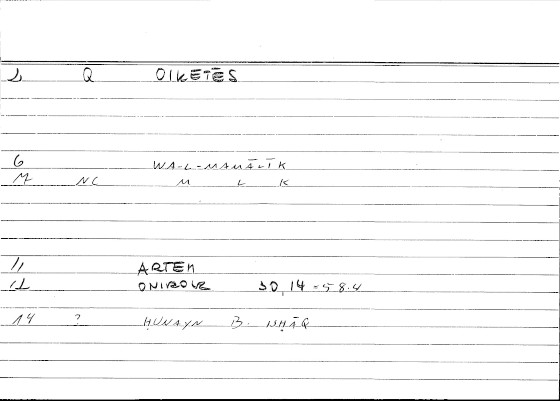 1 Q OIKETĒS
6 WA-L-MAMĀLĪK
M NC M L K
11 ARTEM
12 ONIROCR 30,14 = 58.4
14 2 ḤUNAYN B. ISḤĀQ